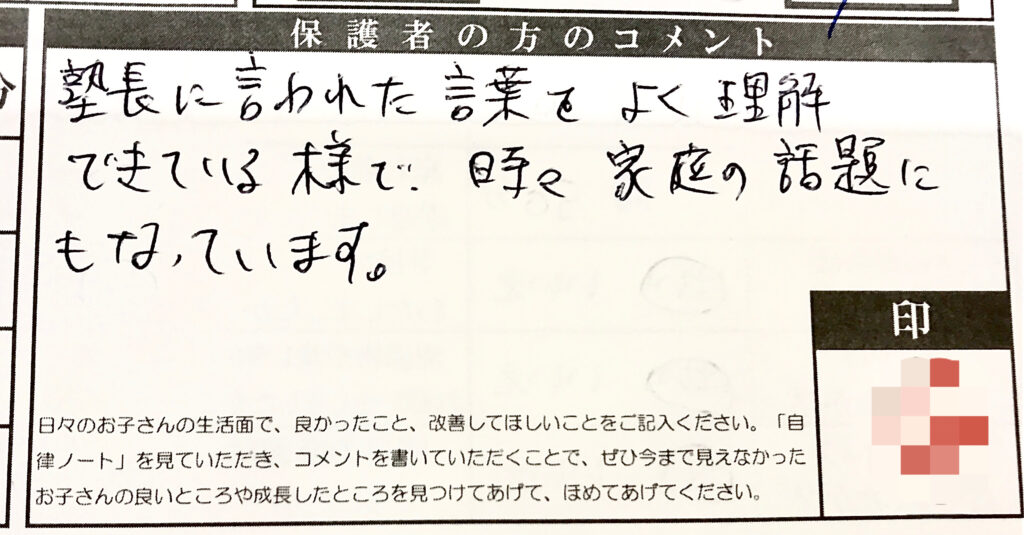 保護者の方のコメント
塾長に言われた言葉をよく理解
できている様で、時々家庭の話題に
もなっています。
印
日々のお子さんの生活面で、良かったこと、改善してほしいことをご記入ください。「自
律ノート」を見ていただき、コメントを書いていただくことで、ぜひ今まで見えなかった
お子さんの良いところや成長したところを見つけてあげて、ほめてあげてください。